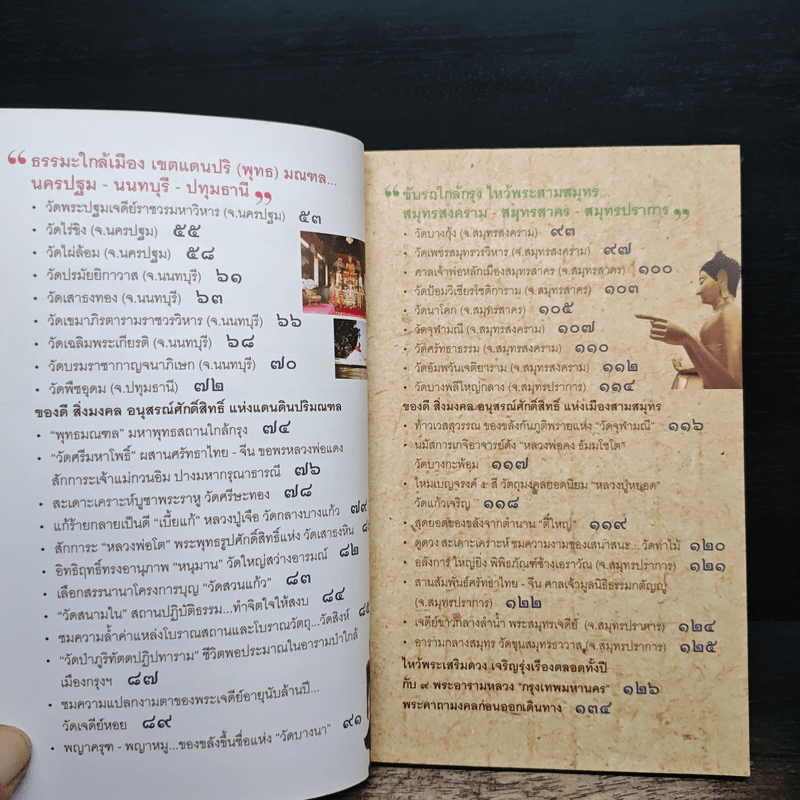 “ธรรมะใกล้เมือง เขตแดนปริ (พุทธ) มณฑล...
นครปฐม - นนทบุรี - ปทุมธานี”
• วัดพระปฐมเจดีย์ราชวรมหาวิหาร (จ.นครปฐม) ๕๓
• วัดไร่ขิง (จ.นครปฐม) ๕๕
• วัดไผ่ล้อม (จ.นครปฐม) ๕๘
• วัดปรมัยยิกาวาส (จ.นนทบุรี) ๖๑
• วัดเสาธงทอง (จ.นนทบุรี) ๖๓
• วัดเขมาภิรตารามราชวรวิหาร (จ.นนทบุรี) ๖๖
• วัดเฉลิมพระเกียรติ (จ.นนทบุรี) ๖๘
• วัดบรมราชากาญจนาภิเษก (จ.นนทบุรี) ๗๐
• วัดพืชอุดม (จ.ปทุมธานี) ๗๒
ของดี สิ่งมงคล อนุสรณ์ศักดิ์สิทธิ์ แห่งแดนดินปริมณฑล
• “พุทธมณฑล” มหาพุทธสถานใกล้กรุง ๗๔
• “วัดศรีมหาโพธิ์” ผสานศรัทธาไทย - จีน ขอพรหลวงพ่อแดง
สักการะเจ้าแม่กวนอิม ปางมหากรุณาธารณี ๗๖
• สะเดาะเคราะห์บูชาพระราหู วัดศรีษะทอง ๗๘
• แก้ร้ายกลายเป็นดี “เบี้ยแก้” หลวงปู่เจือ วัดกลางบางแก้ว ๗๙
• สักการะ “หลวงพ่อโต” พระพุทธรูปศักดิ์สิทธิ์แห่ง วัดเสาธงหิน
• อิทธิฤทธิ์ทรงอานุภาพ “หนุมาน” วัดใหญ่สว่างอารมณ์ ๘๒
• เลือกสรรนานาโครงการบุญ “วัดสวนแก้ว” ๘๓
• “วัดสนามใน” สถานปฏิบัติธรรม...ทำจิตใจให้สงบ ๘๔
• ชมความล้ำค่าแหล่งโบราณสถานและโบราณวัตถุ...วัดสิงห์ ๘๕
• “วัดป่าภูริทัตตปฏิปทาราม” ชีวิตพอประมาณในอารามป่าใกล้
เมืองกรุงฯ ๘๗
• ชมความแปลกงามตาของพระเจดีย์อายุนับล้านปี...
วัดเจดีย์หอย ๘๙
• พญาครุฑ - พญาหมู...ของขลังขึ้นชื่อแห่ง “วัดบางนา” ๙๑
“ขับรถใกล้กรุง ไหว้พระสามสมุทร...
สมุทรสงคราม - สมุทรสาคร - สมุทรปราการ”
• วัดบางกุ้ง (จ.สมุทรสงคราม) ๙๓
• วัดเพชรสมุทรวรวิหาร (จ.สมุทรสงคราม) ๙๗
• ศาลเจ้าพ่อหลักเมืองสมุทรสาคร (จ.สมุทรสาคร) ๑๐๐
• วัดป้อมวิเชียรโชติการาม (จ.สมุทรสาคร) ๑๐๓
• วัดนาโคก (จ.สมุทรสาคร) ๑๐๕
• วัดจุฬามณี (จ.สมุทรสงคราม) ๑๐๗
• วัดศรัทธาธรรม (จ.สมุทรสงคราม) ๑๑๐
• วัดอัมพวันเจติยาราม (จ.สมุทรสงคราม) ๑๑๒
• วัดบางพลีใหญ่กลาง (จ.สมุทรปราการ) ๑๑๔
ของดี สิ่งมงคล อนุสรณ์ศักดิ์สิทธิ์ แห่งเมืองสามสมุทร
• ท้าวเวสสุวรรณ ของขลังกันภูติพรายแห่ง “วัดจุฬามณี” ๑๑๖
• นมัสการเกจิอาจารย์ดัง “หลวงพ่อคง ธัมมโชโต”
วัดบางกะพ้อม ๑๑๗
• ไหมเบญจรงค์ ๕ สี วัตถุมงคลยอดนิยม “หลวงปู่หยอด”
วัดแก้วเจริญ ๑๑๘
• สุดยอดของขลังจากตำนาน “ตี๋ใหญ่” ๑๑๙
• ดูดวง สะเดาะเคราะห์ ชมความงามของเสนาสนะ... วัดท่าไม้ ๑๒๐
• อลังการ์ ใหญ่ยิ่ง พิพิธภัณฑ์ช้างเอราวัณ (จ.สมุทรปราการ) ๑๒๑
• สานสัมพันธ์ศรัทธาไทย - จีน ศาลเจ้ามูลนิธิธรรมกตัญญู
(จ.สมุทรปราการ) ๑๒๒
• เจดีย์ขาวกลางลำน้ำ พระสมุทรเจดีย์ (จ.สมุทรปราการ) ๑๒๔
• อารามกลางสมุทร วัดขุนสมุทรธาวาส (จ.สมุทรปราการ) ๑๒๕
ไหว้พระเสริมดวง เจริญรุ่งเรืองตลอดทั้งปี
กับ ๙ พระอารามหลวง “กรุงเทพมหานคร” ๑๒๖
พระคาถามงคลก่อนออกเดินทาง ๑๓๔